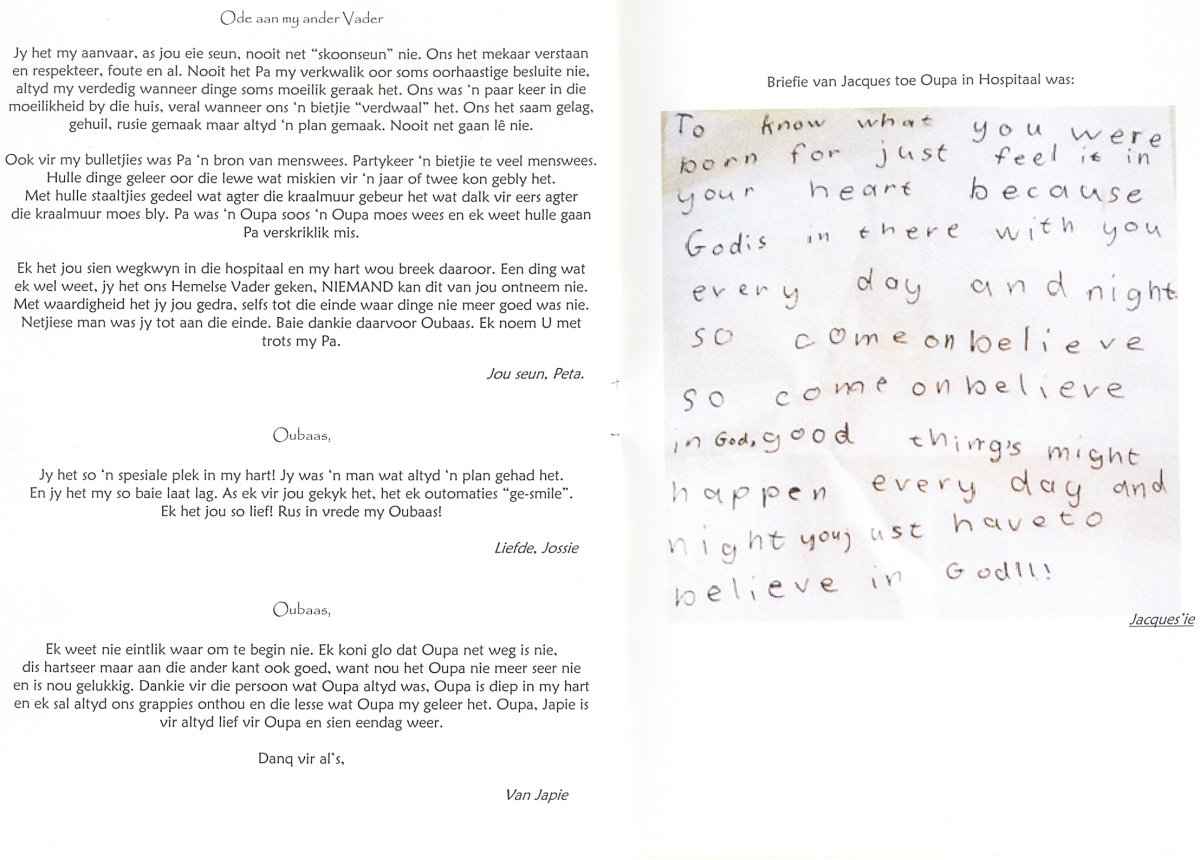 Ode aan my ander Vader
Jy het my aanvaar, as jou eie seun, nooit net “skoonseun” nie. Ons het mekaar verstaan
en respekteer, foute en al. Nooit het Pa my verkwalik oor soms oorhaastige besluite nie,
altyd my verdedig wanneer dinge soms moeilik geraak het. Ons was ‘n paar keer in die
moeilikheid by die huis, veral wanneer ons ‘n bietjie “verdwaal” het. Ons het saam gelag,
gehuil, rusie gemaak maar altyd ‘n plan gemaak. Nooit net gaan lê nie.
Ook vir my bulletjies was Pa ‘n bron van menswees. Partykeer ‘n bietjie te veel menswees.
Hulle dinge geleer oor die lewe wat miskien vir ‘n jaar of twee kon gebly het.
Met hulle staaltjies gedeel wat agter die kraalmuur gebeur het wat dalk vir eers agter
die kraalmuur moes bly. Pa was ‘n Oupa soos ‘n Oupa moes wees en ek weet hulle gaan
Pa verskriklik mis.
Ek het jou sien wegkwyn in die hospitaal en my hart wou breek daaroor. Een ding wat
ek wel weet, jy het ons Hemelse Vader geken, NIEMAND kan dit van jou ontneem nie.
Met waardigheid het jy jou gedra, selfs tot die einde waar dinge nie meer goed was nie.
Netjiese man was jy tot aan die einde. Baie dankie daarvoor Oubaas. Ek noem U met
trots my Pa.
Jou seun, Peta.
Oubaas,
Jy het so ‘n spesiale plek in my hart! Jy was ‘n man wat altyd ‘n plan gehad het.
En jy het my so baie laat lag. As ek vir jou gekyk het, het ek outomaties “ge-smile”.
Ek het jou so lief! Rus in vrede my Oubaas!
Liefde, Jossie
Oubaas,
Ek weet nie eintlik waar om te begin nie. Ek koni glo dat Oupa net weg is nie,
dis hartseer maar aan die ander kant ook goed, want nou het Oupa nie meer seer nie
en is nou gelukkig. Dankie vir die persoon wat Oupa altyd was, Oupa is diep in my hart
en ek sal altyd ons grappies onthou en die lesse wat Oupa my geleer het. Oupa, Japie is
vir altyd lief vir Oupa en sien eendag weer.
Danq vir al’s,
Van Japie
Briefie van Jacques toe Oupa in Hospitaal was:
To know what you were
born for just feel it in
your heart because
God is in there with you
every day and night.
so come on believe
so come on believe
in God, good thing's might
happen every day and
night you just have to
believe in God!!!
Jacques’ie